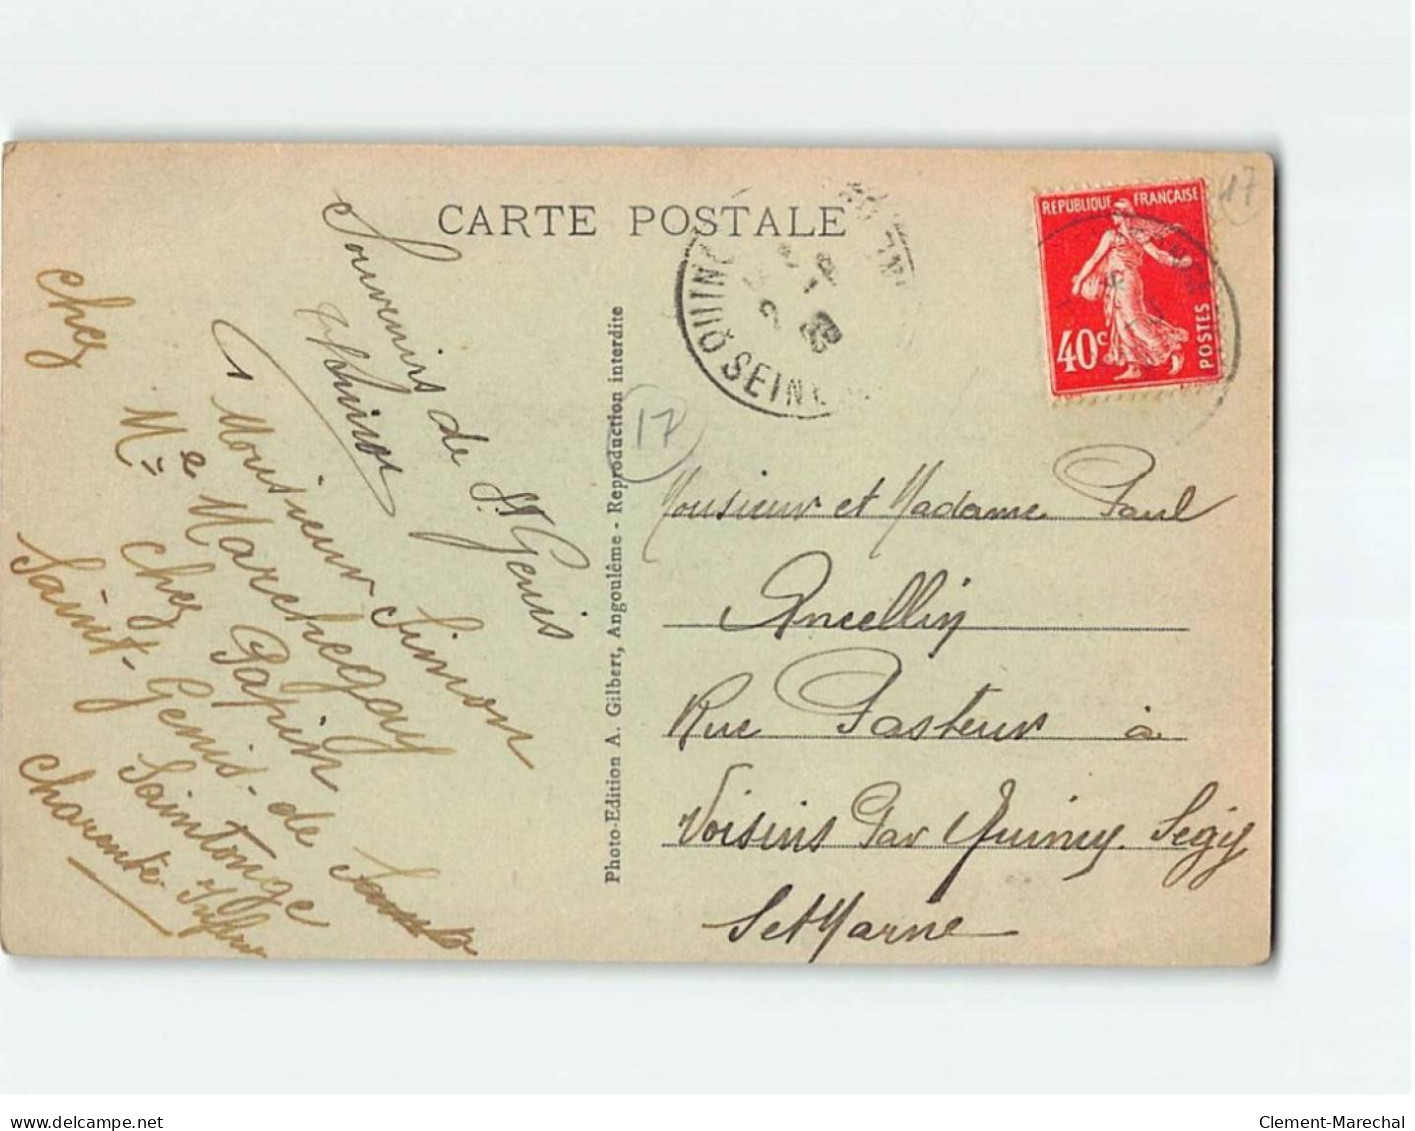 CARTE POSTALE
Souvenirs de St Genis
Chez
Monsieur Simon
Me Marchegay
Chez Papin
Saint-Genis-de
Saintonge
Charente-Infre
Photo-Edition A. Gilbert, Angoulême - Reproduction interdite
17
17
QUINC
SEINE
REPUBLIQUE FRANÇAISE
40c
POSTES
Monsieur et Madame Paul
Ancellin
Rue Pasteur à
Voisins Par Quincy Ségy
Set Marne
delcampe.net
Clement-Marechal